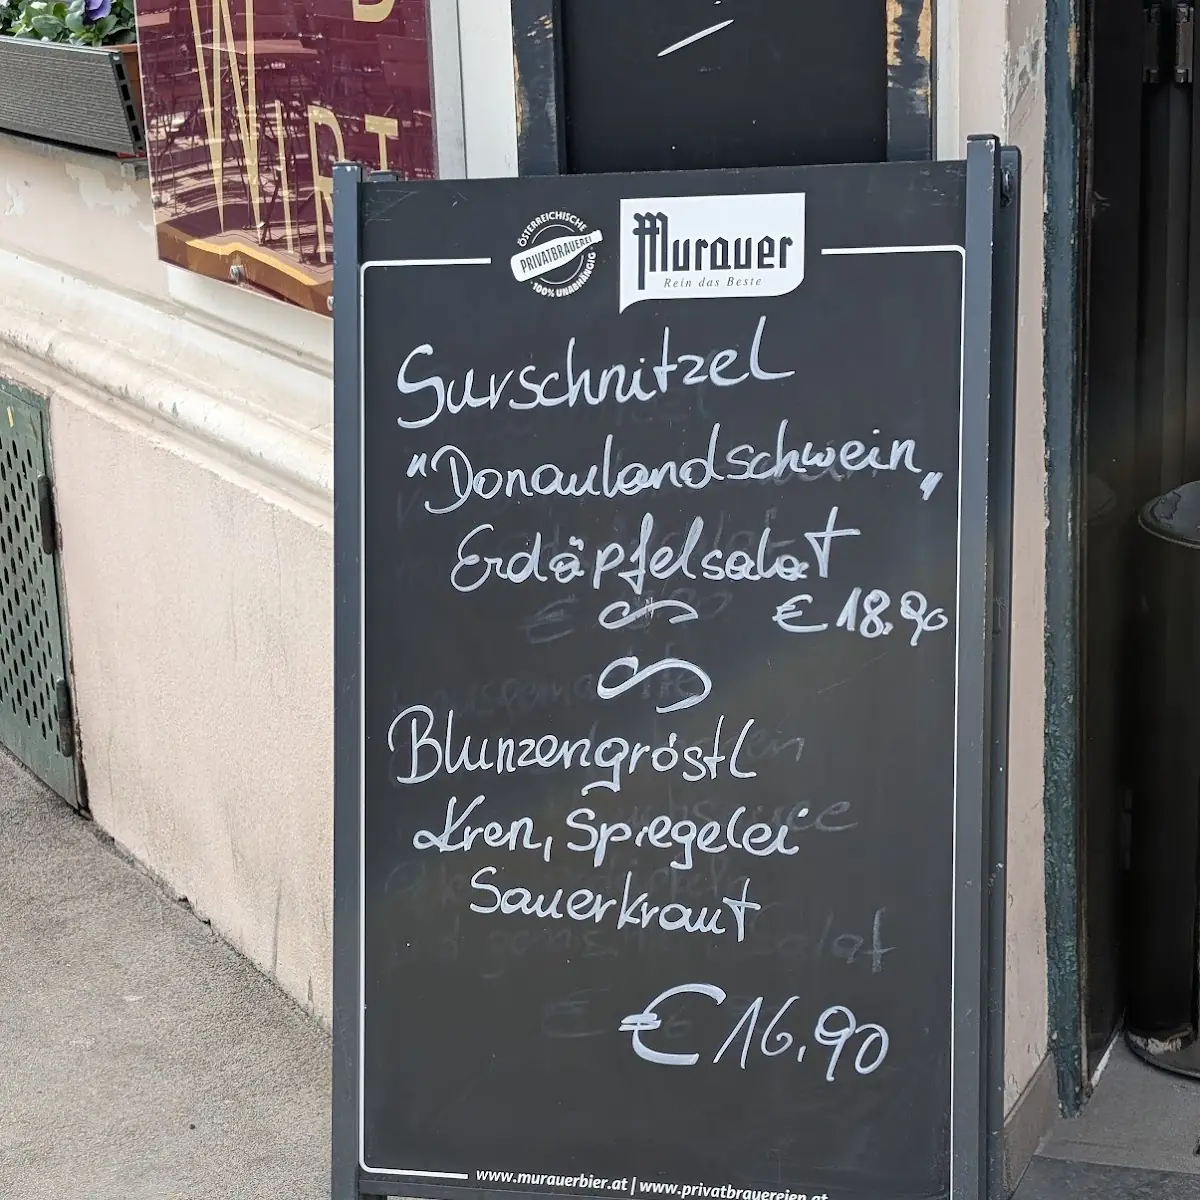 WIRT
ÖSTERREICHISCHE
PRIVATBRAUEREI
100% UNABHÄNGIG
Murauer
Rein das Beste
Surschnitzel
"Donaulandschwein„
Erdäpfelsalat
€ 18,90
Blunzengröstl
Kren, Spiegelei
Sauerkraut
€ 16,90
www.murauerbier.at | www.privatbrauereien.at